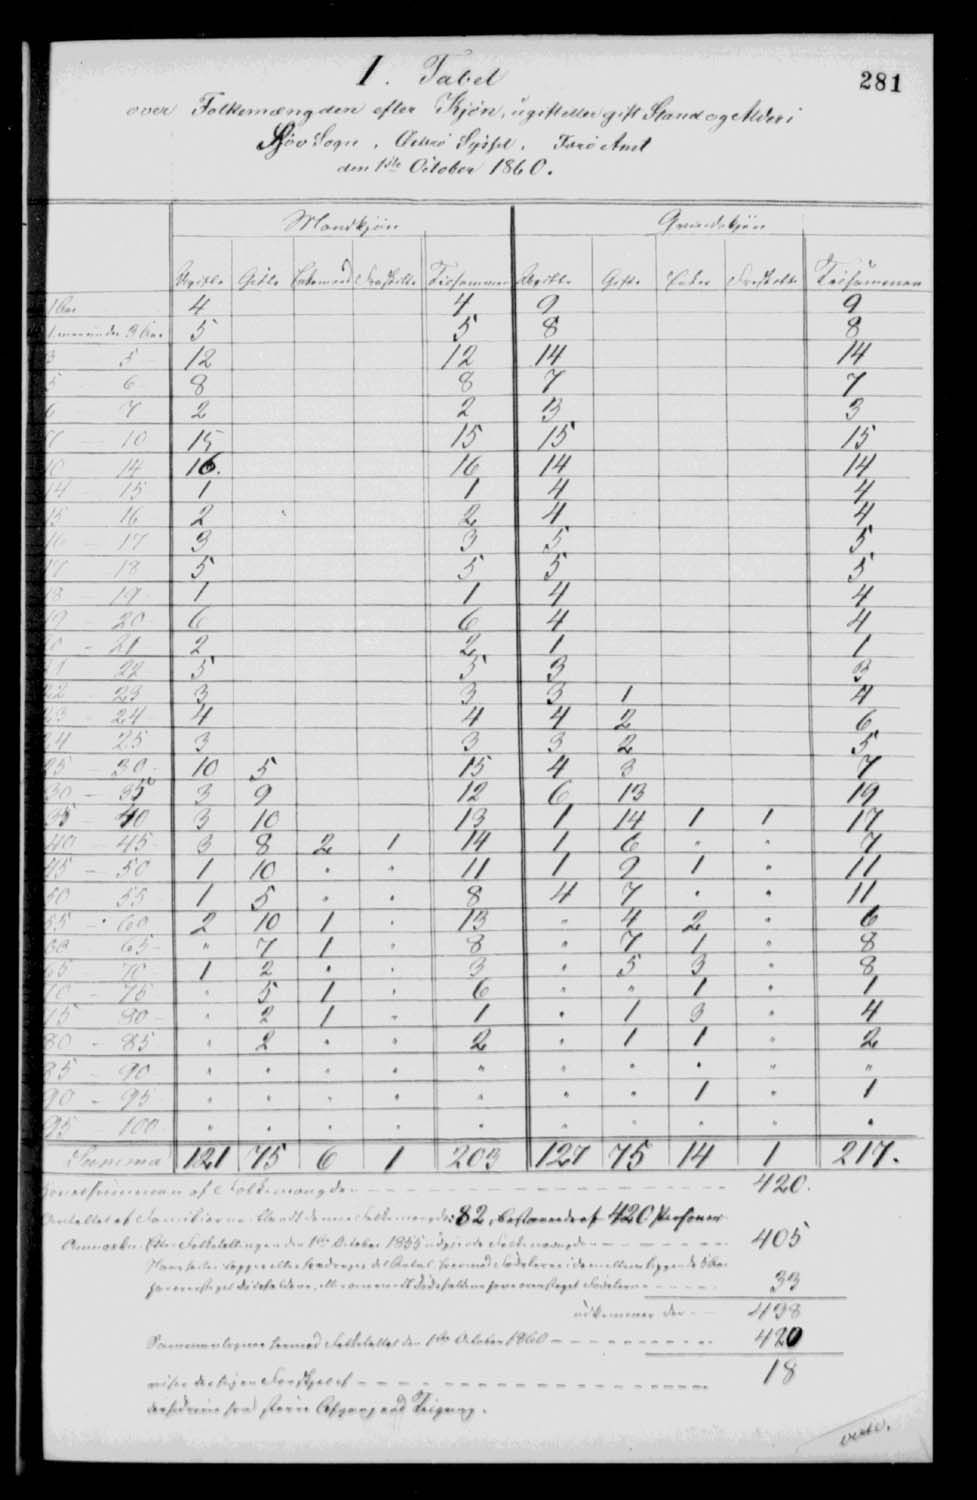 281
I. Tabel
over Folkemængden efter Kjøn, ugift eller gift Stand og Alder i
Sogn, Østerø Syssel, Færø Amt
den 1ste October 1860.
Mandkjøn Qvindekjøn
Ugifte Gifte Enkemænd Fraskilte Tilsammen Ugifte Gifte Enker Fraskilte Tilsammen
1 Aar 4 4 9 9
1 men under 3 Aar 5 5 8 8
3 5 12 12 14 14
5 6 8 8 7 7
6 7 2 2 3 3
7 — 10 15 15 15 15
10 14 16. 16 14 14
14 15 1 1 4 4
15 16 2 2 4 4
16 - 17 3 3 5 5
17 18 5 5 5 5
18 - 19 1 1 4 4
19 - 20 6 6 4 4
20 - 21 2 2 1 1
21 22 5 5 3 3
22 - 23 3 3 3 1 4
23 - 24 4 4 4 2 6
24 25 3 3 3 2 5
25 - 30 10 5 15 4 3 7
30 - 35 3 9 12 6 13 19
35 - 40 3 10 13 1 14 1 1 17
40 - 45 3 8 2 1 14 1 6 " " 7
45 - 50 1 10 " " 11 1 9 1 " 11
50 55 1 5 " " 8 4 7 " " 11
55 - 60 2 10 1 " 13 " 4 2 " 6
60 65 " 7 1 " 8 " 7 1 " 8
65 70 1 2 " " 3 " 5 3 " 8
70 - 75 " 5 1 " 6 " " 1 " 1
75 80 " 2 1 " 1 " 1 3 " 4
80 - 85 " 2 " " 2 " 1 1 " 2
85 - 90 " " " " " " " " " "
90 - 95 " " " " " " " 1 " 1
95 - 100 " " " " " " " " " "
Summa 121 75 6 1 203 127 75 14 1 217.
Hovedsummen af Folkemængden 420.
Antallet af Familierne blandt denne Folkemængde: 82, bestaaende af 420 Personer
Anmærkn. Efter Folketællingen den 1ste October 1855 udgjorde Folkemængden 405
Hertil lægges eller fradrages det Antal, hvormed Fødslerne i de mellemliggende 5 Aar
have oversteget Dødsfaldene, eller omvendt Dødsfaldene have oversteget Fødslerne 33
udkommer der 438
Sammenlignes hermed Folketallet den 1ste October 1860 420
viser der sig en Forskjel af 18
der hidrører fra større Afgang end Tilgang.
verte.